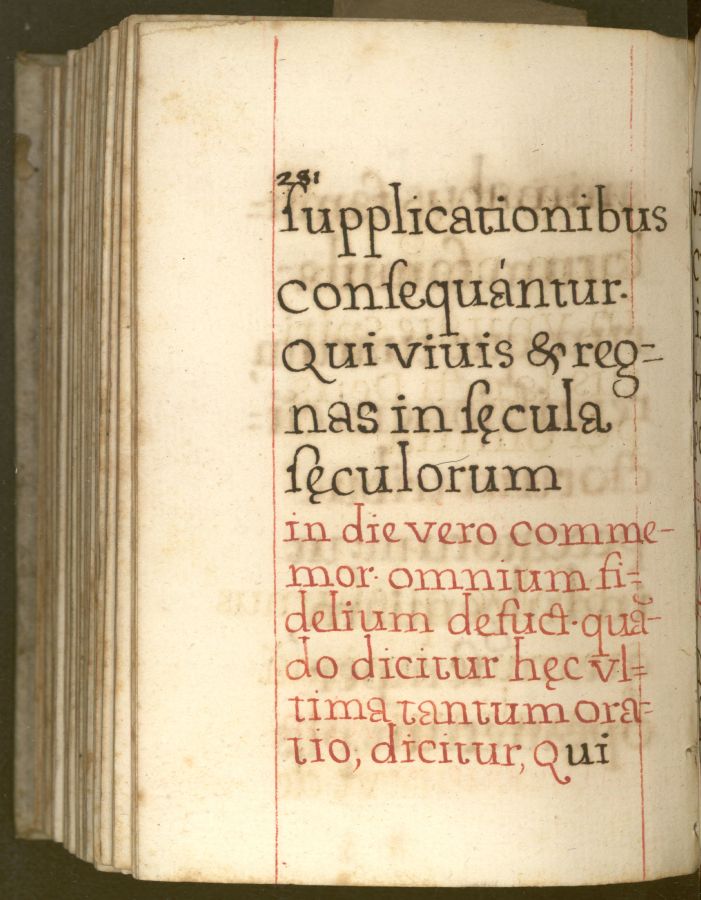 281
ſupplicationibus
conſequántur.
Qui viuis & reg=
nas in ſęcula
ſęculorum
in die vero comme-
mor. omnium fi=
delium defuct. quã-
do dicitur hęc vl=
tima tantum ora=
tio, dicitur, Qui